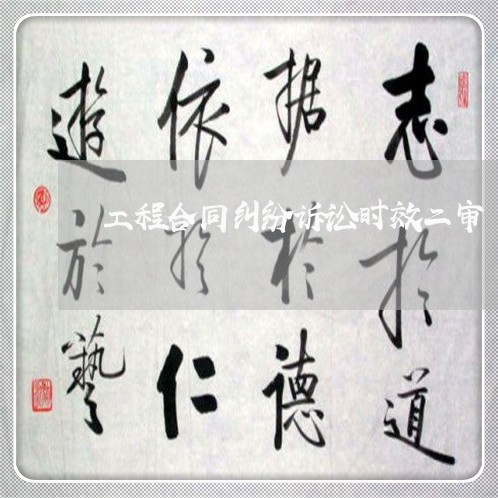 志於道
据於德
依於仁
遊於藝
工程合同纠纷诉讼时效二审